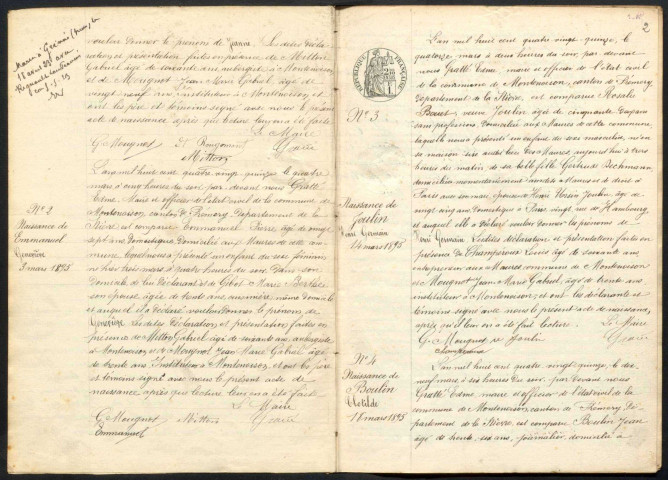 vouloir donner le prénom de Jeanne. Lesdites décla-
rations et présentation faites en présence de Mitton
Gabriel âgé de soixante ans, aubergiste à Montenoison
et de Mougnot Jean Marie Gabriel âgé de
vingt neuf ans Instituteur à Montenoison et
ont les père et témoins signé avec nous le présent
acte de naissance après que lecture leur en a été faite.
Le Maire
G. Mougnot
Mitton
Gratté
N° 2
Naissance de
Emmanuel
Geneviève
3 mars 1895
L'an mil huit cent quatre vingt quinze le quatre
mars à heures du soir, par devant nous Gratté
Edme, Maire et officier de l'état civil de la commune de
Montenoison, canton de Prémery, Département de la
Nièvre est comparu Emmanuel Pierre âgé de vingt
sept ans Domestique Domicilié aux Maures de cette com-
mune, lequel nous a présenté un enfant du sexe féminin
né hier trois mars à quatre heures du soir dans son
Domicile de lui Déclarant et de Gobet Marie
son épouse âgée de trente ans, même Domicile
et auquel il a déclaré vouloir donner le prénom de
Geneviève Lesdites Déclaration et présentation faites en
présence de Mitton Gabriel âgé de soixante ans, aubergiste
à Montenoison, et de Mougnot Jean Marie Gabriel âgé
de trente ans Instituteur à Montenoison, et ont le père
et témoins signé avec nous le présent acte de
naissance après que lecture leur en a été faite
Le Maire
G. Mougnot Mitton Gratté
Emmanuel
2
RÉPUBLIQUE FRANÇAISE
N° 3
Naissance de
Joulin
Henri Germain
14 mars 1895
L'an mil huit cent quatre vingt quinze, le
quatorze mars à deux heures du soir, par devant
nous Gratté Edme maire et officier de l'état civil
de la commune de Montenoison, canton de Prémery
Département de la Nièvre, est comparue Rosalie
Bouet, veuve Joulin âgée de cinquante ans
sans profession, Domiciliée aux Maures de cette commune,
laquelle nous a présenté un enfant du sexe masculin, né en
sa maison sise audit lieu des Maures, aujourd'hui à trois
heures du matin de sa belle fille Gertrude Bechmann
domiciliée momentanément audit lieu des Maures et à droit à
Paris avec son mari, époux Henri Joulin âgé de
vingt cinq ans Domestique à Paris vingt rue de Hambourg,
et auquel elle a déclaré vouloir donner les prénoms de
Henri Germain. Lesdites déclaration et présentation faites en
présence de Champroux Louis âgé de soixante ans
entrepreneur aux Maures commune de Montenoison
et Mougnot Jean Marie Gabriel, âgé de trente ans
instituteur à Montenoison, et ont les déclarante et
témoins signé avec nous le présent acte de naissance,
après qu'il leur en a été fait lecture. Le Maire
G. Mougnot Joulin Gratté
Champroux
N° 4
Naissance de
Boulin
Clotilde
18 mars 1895
L'an mil huit cent quatre vingt quinze, le dix
neuf mars à six heures du soir, par devant nous
Gratté Edme maire et officier de l'état civil de la
commune de Montenoison, canton de Prémery Dé-
partement de la Nièvre, est comparu Boulin Jean
âgé de trente six ans, journalier, domicilié à